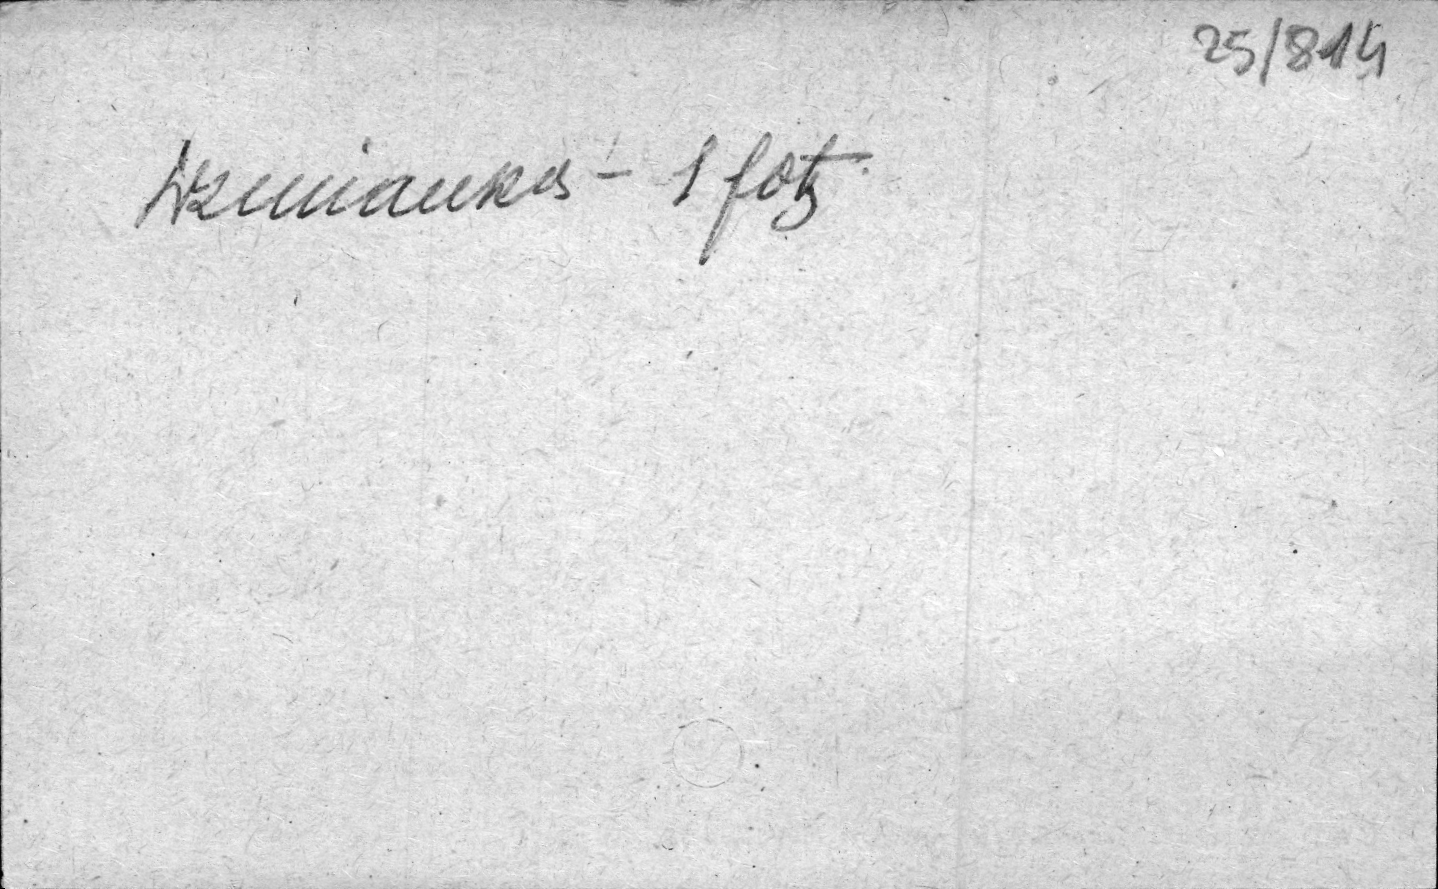 25/814
Wzmianka - 1 fot.